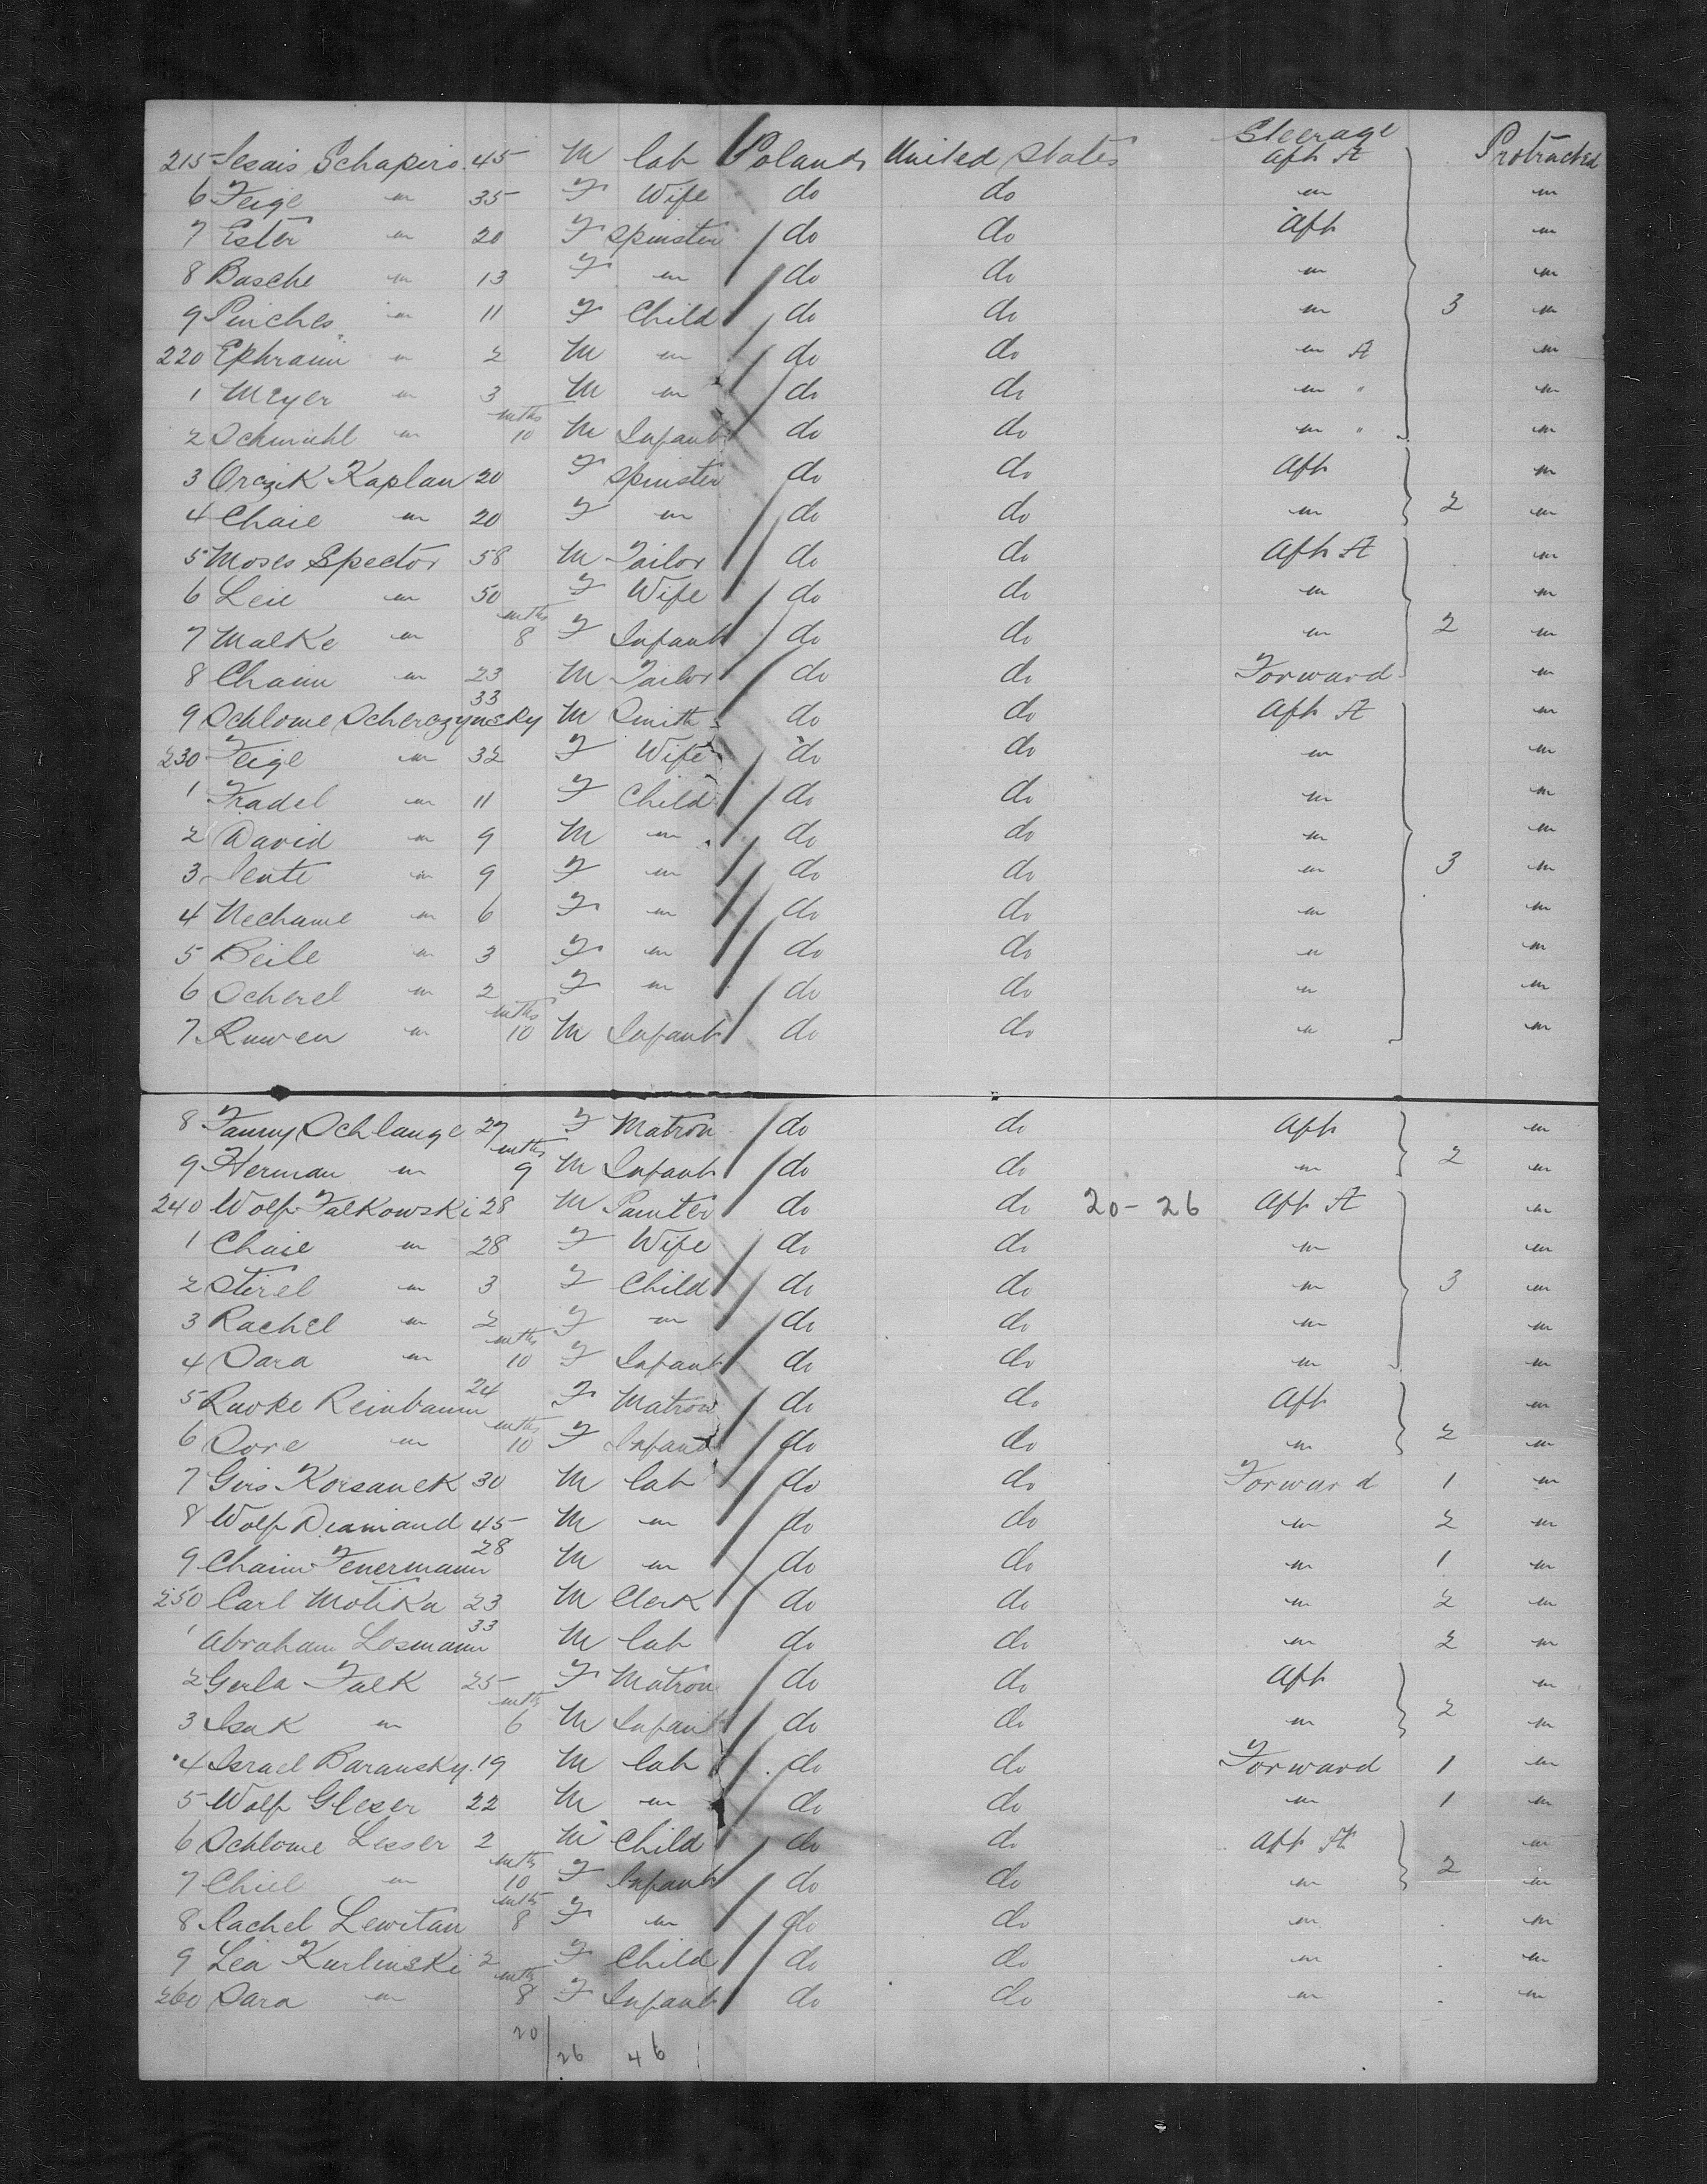 215 Jesais Schapiro 45 M lab Poland United States Steerage Aft St Protracted
6 Feige " 35 F Wife do do " "
7 Ester " 20 F Spinster do do Aft "
8 Basche " 13 F " do do " "
9 Pinches " 11 F Child do do " 3 "
220 Ephraim " 2 M " do do " St "
1 Meyer " 3 M " do do " " "
2 Schmuhl " mths 10 M Infant do do " " "
3 Orczik Kaplan 20 F Spinster do do Aft "
4 Chaie " 20 F " do do " 2 "
5 Moses Spector 58 M Tailor do do Aft St "
6 Leie " 50 F Wife do do " "
7 Malke " mths 8 F Infant do do " 2 "
8 Chaim " 23 M Tailor do do Forward "
9 Schlome Scherczynsky 33 M Smith do do Aft St "
230 Feige " 32 F Wife do do " "
1 Fradel " 11 F Child do do " "
2 David " 9 M " do do " "
3 Jente " 9 F " do do " 3 "
4 Nechame " 6 F " do do " "
5 Beile " 3 F " do do " "
6 Scherel " 2 F " do do " "
7 Ruwen " mths 10 M Infant do do " "
8 Fanny Schlange 27 F Matron do do Aft "
9 Herman " mths 9 M Infant do do " 2 "
240 Wolf Falkowski 28 M Painter do do 20 - 26 Aft St "
1 Chaie " 28 F Wife do do " "
2 Stirel " 3 F Child do do " 3 "
3 Rachel " 2 F " do do " "
4 Sara " mths 10 F Infant do do " "
5 Rwoke Reinbaum 24 F Matron do do Aft "
6 Sore " mths 10 F Infant do do " 2 "
7 Girs Korsanek 30 M lab do do Forward 1 "
8 Wolf Diamand 45 M " do do " 2 "
9 Chaim Fenermann 28 M " do do " 1 "
250 Carl Motika 23 M Clerk do do " 2 "
1 Abraham Losmann 33 M lab do do " 2 "
2 Gerla Falk 25 F Matron do do Aft "
3 Isak " mths 6 M Infant do do " 2 "
4 Israel Baransky 19 M lab do do Forward 1 "
5 Wolf Gleser 22 M " do do " 1 "
6 Schlome Lesser 2 M Child do do Aft St "
7 Chiel " mths 10 F Infant do do " 2 "
8 Rachel Lewitan mths 8 F " do do " "
9 Lea Kurlinski 2 F Child do do " "
260 Sara " mths 8 F Infant do do " "
20 26 46